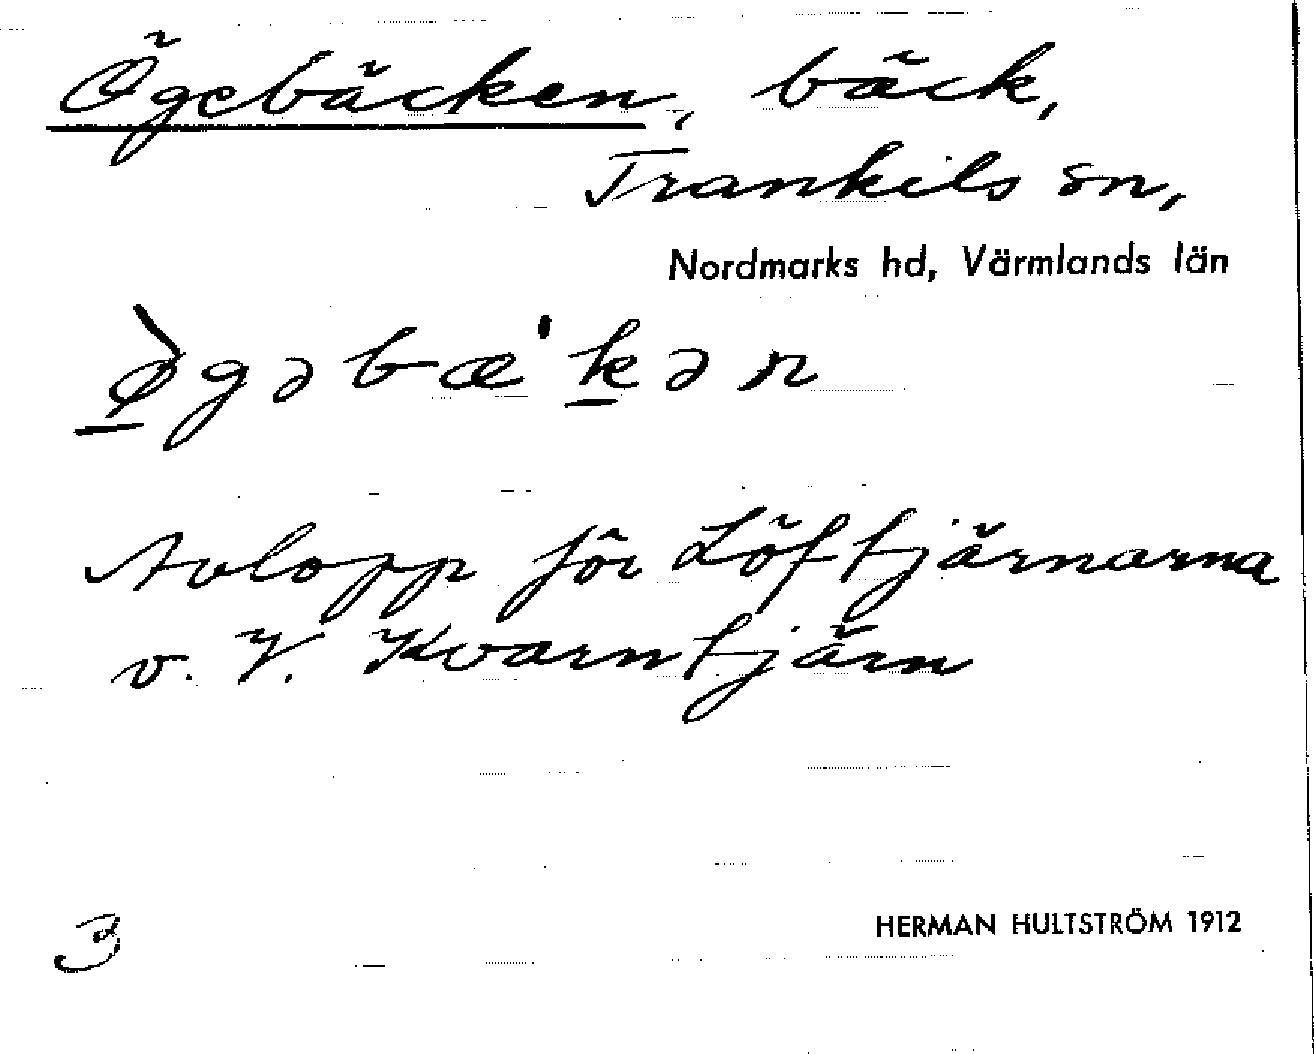 Ögebäcken, bäck,
Trankils sn,
Nordmarks hd, Värmlands län
ø̀gəbæ'kən
Avlopp för Löftjärnarna
v. V. Kvarntjärn
3
HERMAN HULTSTRÖM 1912